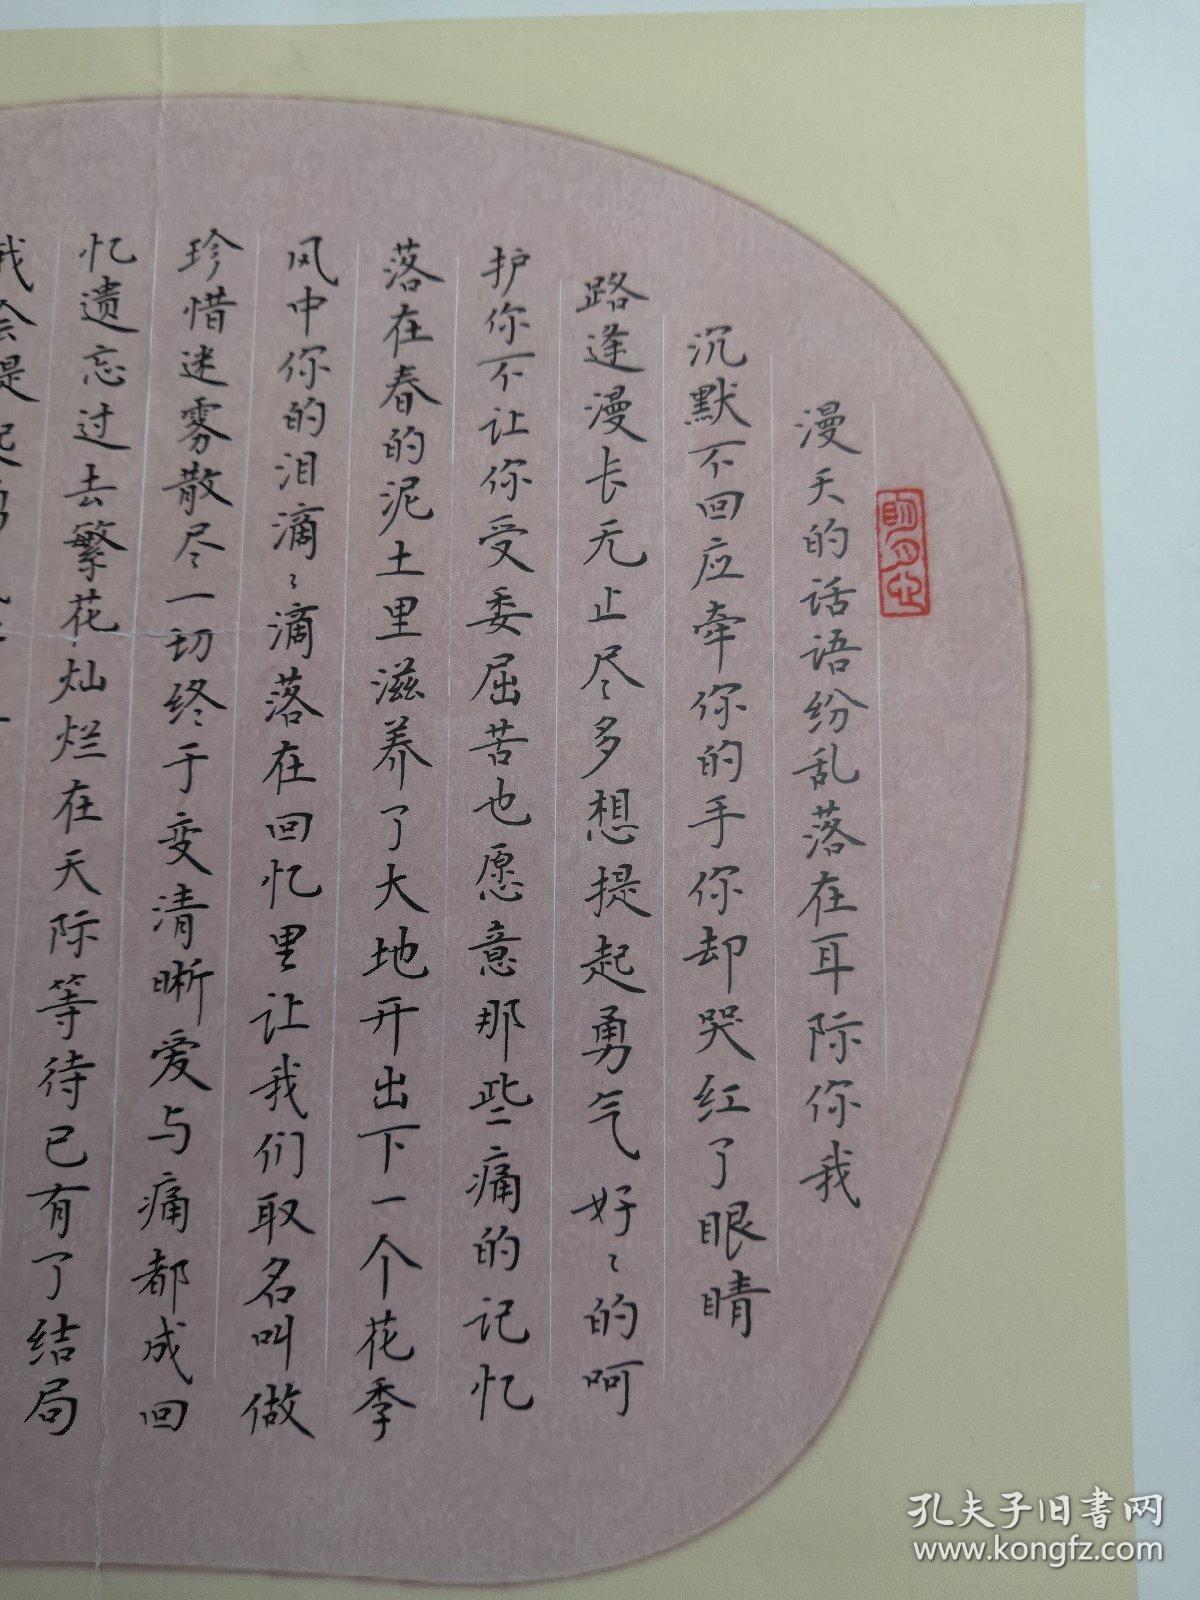 漫天的话语纷乱落在耳际你我
沉默不回应牵你的手你却哭红了眼睛
路途漫长无止尽多想提起勇气好〻的呵
护你不让你受委屈苦也愿意那些痛的记忆
落在春的泥土里滋养了大地开出下一个花季
风中你的泪滴〻滴落在回忆里让我们取名叫做
珍惜迷雾散尽一切终于变清晰爱与痛都成回
忆遗忘过去繁花灿烂在天际等待已有了结局
我会是
孔夫子旧书网
www.kongfz.com